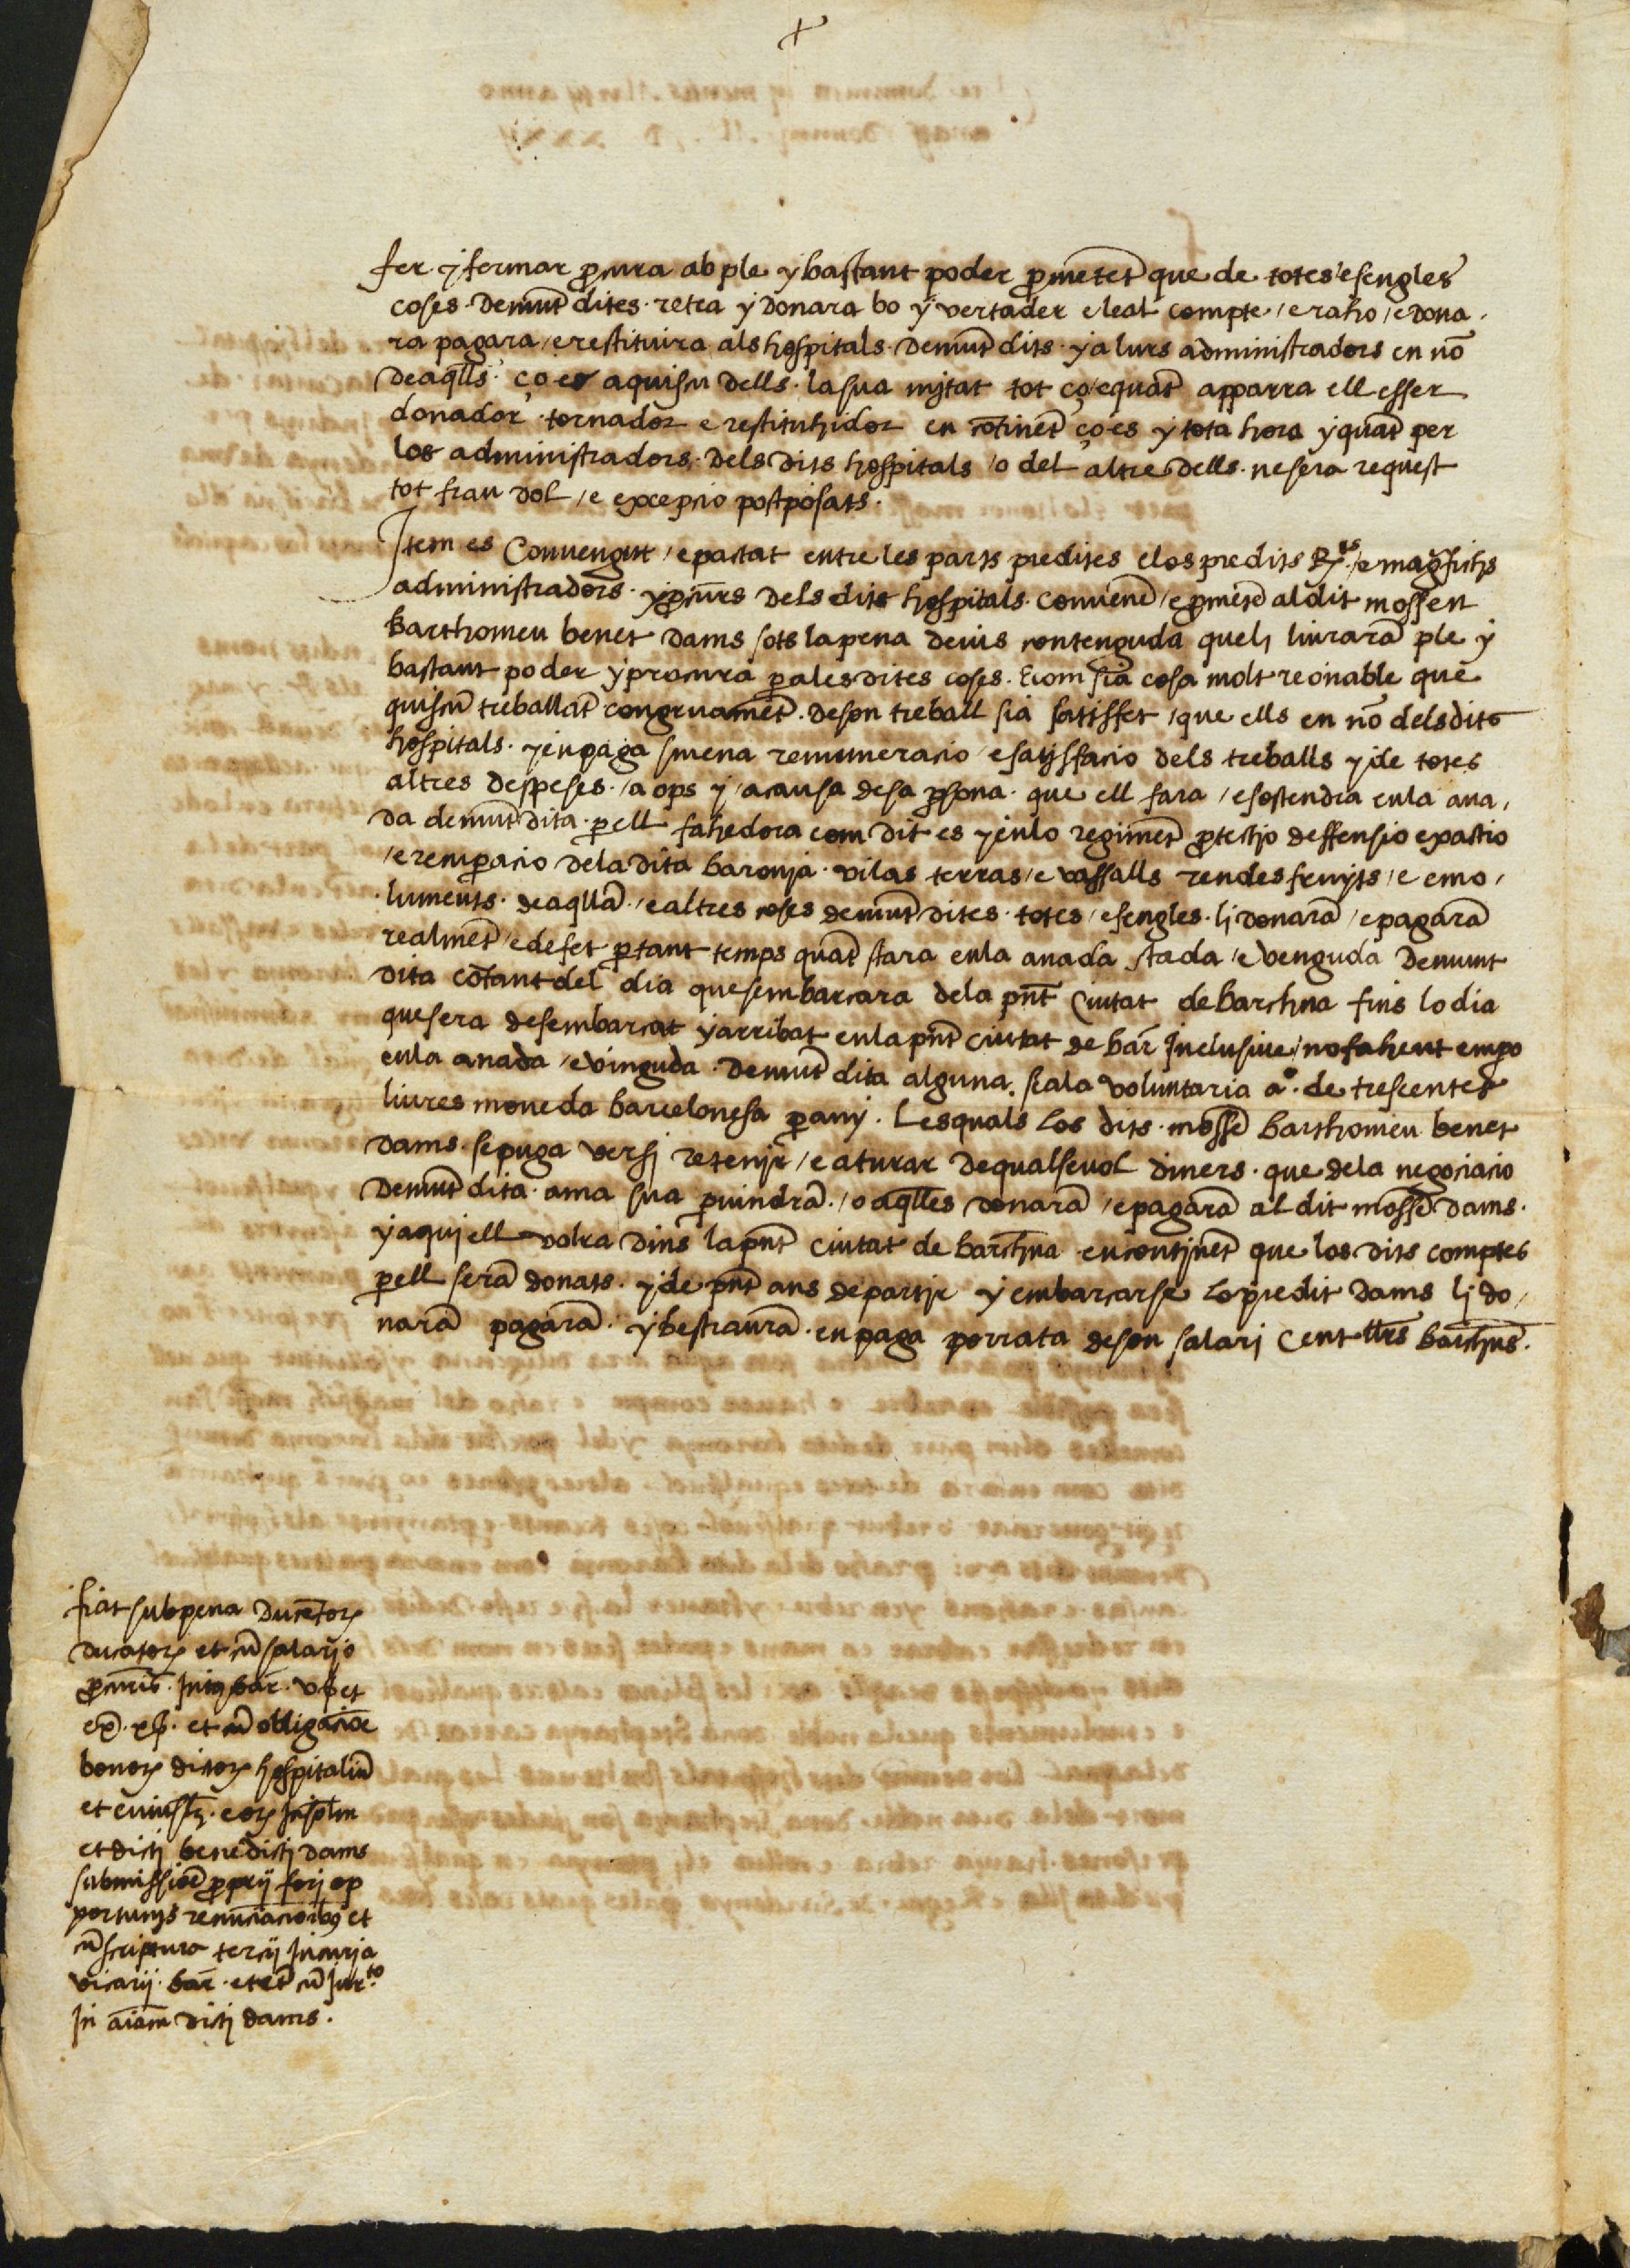 +
fer y fermar p̱cura ab ple y bastant poder p̱metet̄ que de totes e sengles
coses demut̄ dites retra y donara bo y vertader e leal compte / e raho / e dona
ra pagara / e restituira als hospitals demut̄ dits y a lurs administradors en nō
de aq̄lls ço es a quiscu dells la sua mitat tot ço / e quāt apparra ell esser
donador tornador e restituhidor en cōtinēt ço es y tota hora y quāt per
los administradors dels dits hospitals / o del altre dells ne sera request
tot frau dol / e excepcio postposats.
Item es Convengut / e pactat entre les parts predites e los predits R.ts / e magf̄ichs
administradors y p̱curs̄ dels dits hospitals convenē / e p̱metē al dit mossen
Barthomeu benet dams sots la pena devis contenguda queli liurarā ple y
bastant poder y procura p̱a les dites coses. E com sia cosa molt reonable que
quiscu treballāt congruamēt de son treball sia satisffet / que ells en nō dels dits
hospitals y en paga smena remuneracio / e satisfacio dels treballs y de totes
altres despeses / a ops y / a causa de sa p̱sona que ell fara / e sostendra en la ana
da demūt dita p̱ ell fahedora com dit es y en lo regimēt p̱tectio deffensio exactio
/ e remp̱acio de la dita baronia vilas terras / e vassalls rendes fruyts / e emo
luments de aq̄lla / e altres coses demūt dites totes / e sengles li donarā / e pagarā
realmēt / e de fet p̱ tant temps quāt stara en la anada stada / e venguda demunt
dita cōtant del dia que sembarcara de la pn̄t Ciutat de Barchn̄a fins lo dia
que sera desembarcat y arribat en la pn̄t ciutat de bar̄ Inclusive / no fahent emp̱o
en la anada / e vinguda demūt dita alguna scala voluntaria a.º de trescentes
liures moneda barcelonesa p̱ any. Les quals los dits mossē barthomeu benet
dams se puga versi retenir / e aturar de qualsevol diners que de la negociacio
demūt dita a ma sua p̱vindrā / o aq̄lles donarā / e pagarā al dit mossē dams
y a qui ell volra dins la pn̄t ciutat de barchn̄a encontinēt que los dits comptes
p̱ ell serā donats y de pn̄t ans de partir y embarcarse lo predit dams li do
narā pagarā y bestraurā en paga porrata de son salari Cent llr̄s barchn̄s.
fiat sub pena ducētoꝝ
ducatoꝝ et cū salario
p̱curis̄ Intꝰ bar̄ v ꝑ et
ex̄ xꝑ et cū obligacioē
bonoꝝ dictoꝝ hospitaliū
et cuiuslꝫ eoꝝ Insolm̄
et dicti benedicti dams
submissioē p̱prij fori op
portunis renūciacioībꝰ et
cū scriptura tercij In curia
vicarij bar̄ et et̄ cū Jur.to
In aīam dicti dams.